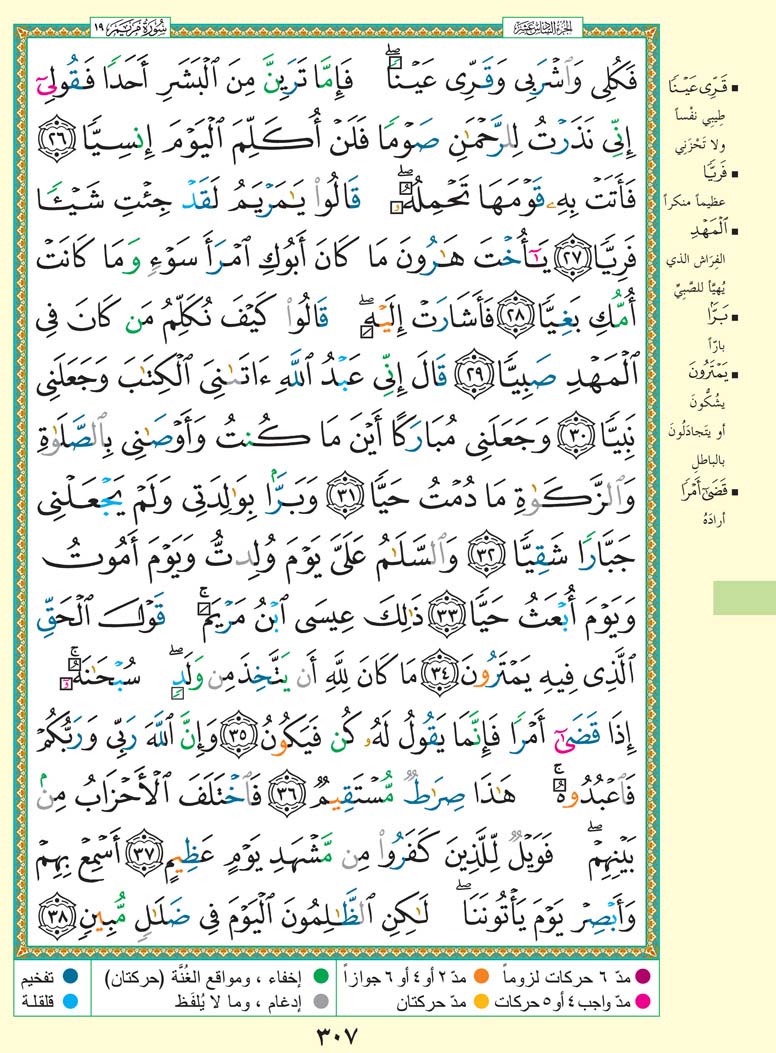 سُورَةُ مَرْيَمَ ١٩
الجزء السادس عشر
فَكُلِي وَٱشْرَبِي وَقَرِّي عَيْنًا ۖ فَإِمَّا تَرَيِنَّ مِنَ ٱلْبَشَرِ أَحَدًا فَقُولِيٓ
إِنِّي نَذَرْتُ لِلرَّحْمَٰنِ صَوْمًا فَلَنْ أُكَلِّمَ ٱلْيَوْمَ إِنسِيًّا ٢٦
فَأَتَتْ بِهِۦ قَوْمَهَا تَحْمِلُهُۥ ۖ قَالُوا۟ يَٰمَرْيَمُ لَقَدْ جِئْتِ شَيْـًٔا
فَرِيًّا ٢٧ يَٰٓأُخْتَ هَٰرُونَ مَا كَانَ أَبُوكِ ٱمْرَأَ سَوْءٍ وَمَا كَانَتْ
أُمُّكِ بَغِيًّا ٢٨ فَأَشَارَتْ إِلَيْهِ ۖ قَالُوا۟ كَيْفَ نُكَلِّمُ مَن كَانَ فِي
ٱلْمَهْدِ صَبِيًّا ٢٩ قَالَ إِنِّي عَبْدُ ٱللَّهِ ءَاتَىٰنِيَ ٱلْكِتَٰبَ وَجَعَلَنِي
نَبِيًّا ٣٠ وَجَعَلَنِي مُبَارَكًا أَيْنَ مَا كُنتُ وَأَوْصَٰنِي بِٱلصَّلَوٰةِ
وَٱلزَّكَوٰةِ مَا دُمْتُ حَيًّا ٣١ وَبَرًّۢا بِوَٰلِدَتِي وَلَمْ يَجْعَلْنِي
جَبَّارًا شَقِيًّا ٣٢ وَٱلسَّلَٰمُ عَلَيَّ يَوْمَ وُلِدتُّ وَيَوْمَ أَمُوتُ
وَيَوْمَ أُبْعَثُ حَيًّا ٣٣ ذَٰلِكَ عِيسَى ٱبْنُ مَرْيَمَ ۚ قَوْلَ ٱلْحَقِّ
ٱلَّذِي فِيهِ يَمْتَرُونَ ٣٤ مَا كَانَ لِلَّهِ أَن يَتَّخِذَ مِن وَلَدٍ ۖ سُبْحَٰنَهُۥٓ ۚ
إِذَا قَضَىٰٓ أَمْرًا فَإِنَّمَا يَقُولُ لَهُۥ كُن فَيَكُونُ ٣٥ وَإِنَّ ٱللَّهَ رَبِّي وَرَبُّكُمْ
فَٱعْبُدُوهُ ۚ هَٰذَا صِرَٰطٌ مُّسْتَقِيمٌ ٣٦ فَٱخْتَلَفَ ٱلْأَحْزَابُ مِنۢ
بَيْنِهِمْ ۖ فَوَيْلٌ لِّلَّذِينَ كَفَرُوا۟ مِن مَّشْهَدِ يَوْمٍ عَظِيمٍ ٣٧ أَسْمِعْ بِهِمْ
وَأَبْصِرْ يَوْمَ يَأْتُونَنَا ۖ لَٰكِنِ ٱلظَّٰلِمُونَ ٱلْيَوْمَ فِي ضَلَٰلٍ مُّبِينٍ ٣٨
قَرِّي عَيْنًا
طِيبِي نفْساً
ولا تَحْزَنِي
فَرِيًّا
عظيماً منكراً
ٱلْمَهْدِ
الفِرَاش الذي
يُهيَّأ للصَّبِيِّ
بَرًّا
بارّاً
يَمْتَرُونَ
يشُكُّونَ
أو يتَجادَلُونَ
بالباطلِ
قَضَىٰٓ أَمْرًا
أرادَهُ
مدّ ٦ حركات لزوماً
مدّ ٢ أو ٤ أو ٦ جوازاً
إخفاء ، ومواقع الغُنَّة (حركتان)
تفخيم
مدّ واجب ٤ أو ٥ حركات
مدّ حركتان
إدغام ، وما لا يُلفَظ
قلقلة
٣٠٧